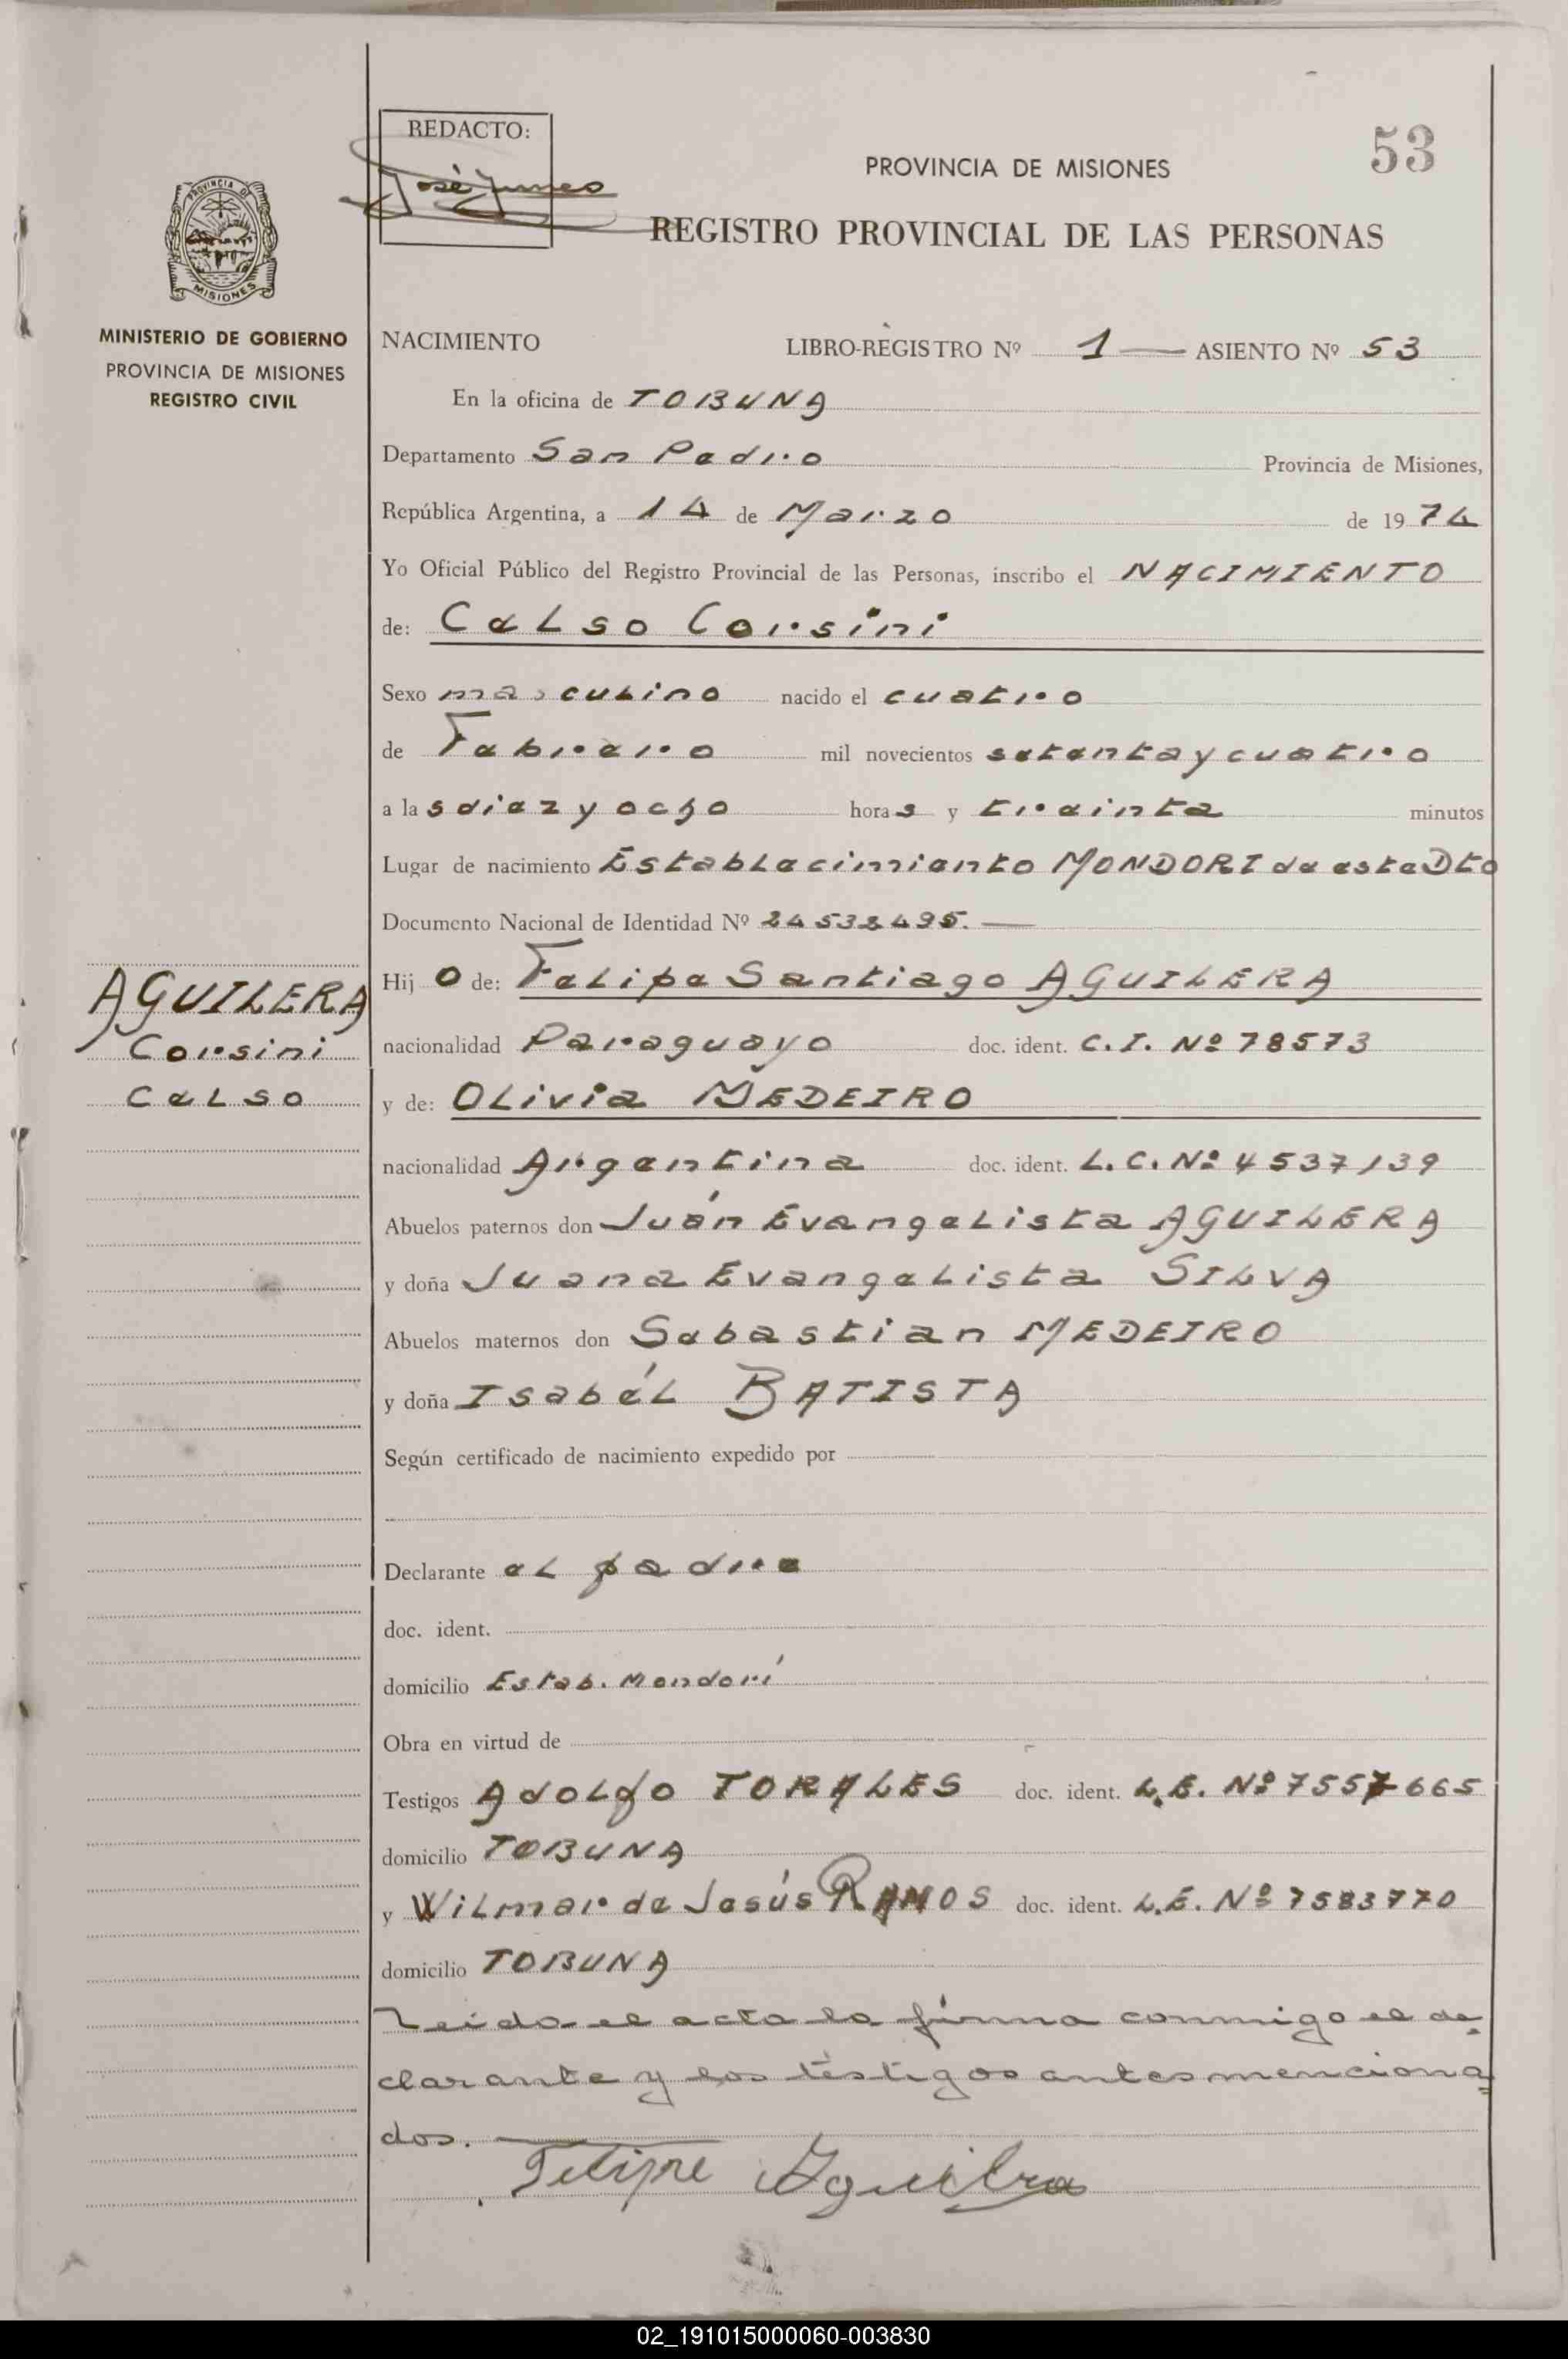 53
REDACTO:
PROVINCIA DE MISIONES
REGISTRO PROVINCIAL DE LAS PERSONAS
PROVINCIA DE
MISIONES
MINISTERIO DE GOBIERNO
PROVINCIA DE MISIONES
REGISTRO CIVIL
NACIMIENTO LIBRO-REGISTRO Nº 1 — ASIENTO Nº 53
En la oficina de TOBUNA
Departamento San Pedro Provincia de Misiones,
República Argentina, a 14 de Marzo de 1974
Yo Oficial Público del Registro Provincial de las Personas, inscribo el NACIMIENTO
de: Celso Corsini
Sexo masculino nacido el cuatro
de Febrero mil novecientos setenta y cuatro
a las diez y ocho horas y treinta minutos
Lugar de nacimiento Establecimiento MONDORI de este Dto
Documento Nacional de Identidad Nº 24538495. —
AGUILERA
Corsini
Celso
Hijo de: Felipe Santiago AGUILERA
nacionalidad Paraguayo doc. ident. C.I. Nº 78573
y de: Olivia MEDEIRO
nacionalidad Argentina doc. ident. L.C. Nº 4537139
Abuelos paternos don Juán Evangelista AGUILERA
y doña Juana Evangelista SILVA
Abuelos maternos don Sebastian MEDEIRO
y doña Isabél BATISTA
Según certificado de nacimiento expedido por
Declarante el padre
doc. ident.
domicilio Estab. Mondorí
Obra en virtud de
Testigos Adolfo TORALES doc. ident. L.E. Nº 7557665
domicilio TOBUNA
y Wilmar de Jesús RAMOS doc. ident. L.E. Nº 7583770
domicilio TOBUNA
Leido el acta la firma conmigo el de
clarante y los testigos antes menciona
dos. —
Felipe Aguilera
02_191015000060-003830